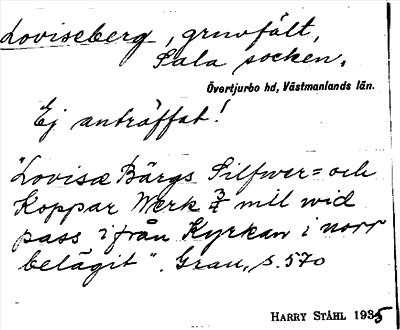 Loviseberg, gruvfält,
Sala socken.
Övertjurbo hd, Västmanlands län.
Ej anträffat!
"Lovisæ Bärgs Silfwer= och
Koppar Werk ¾ mill wid
pass ifrån Kyrkan i norr
belägit". Grau, s. 570
HARRY STÅHL 1935